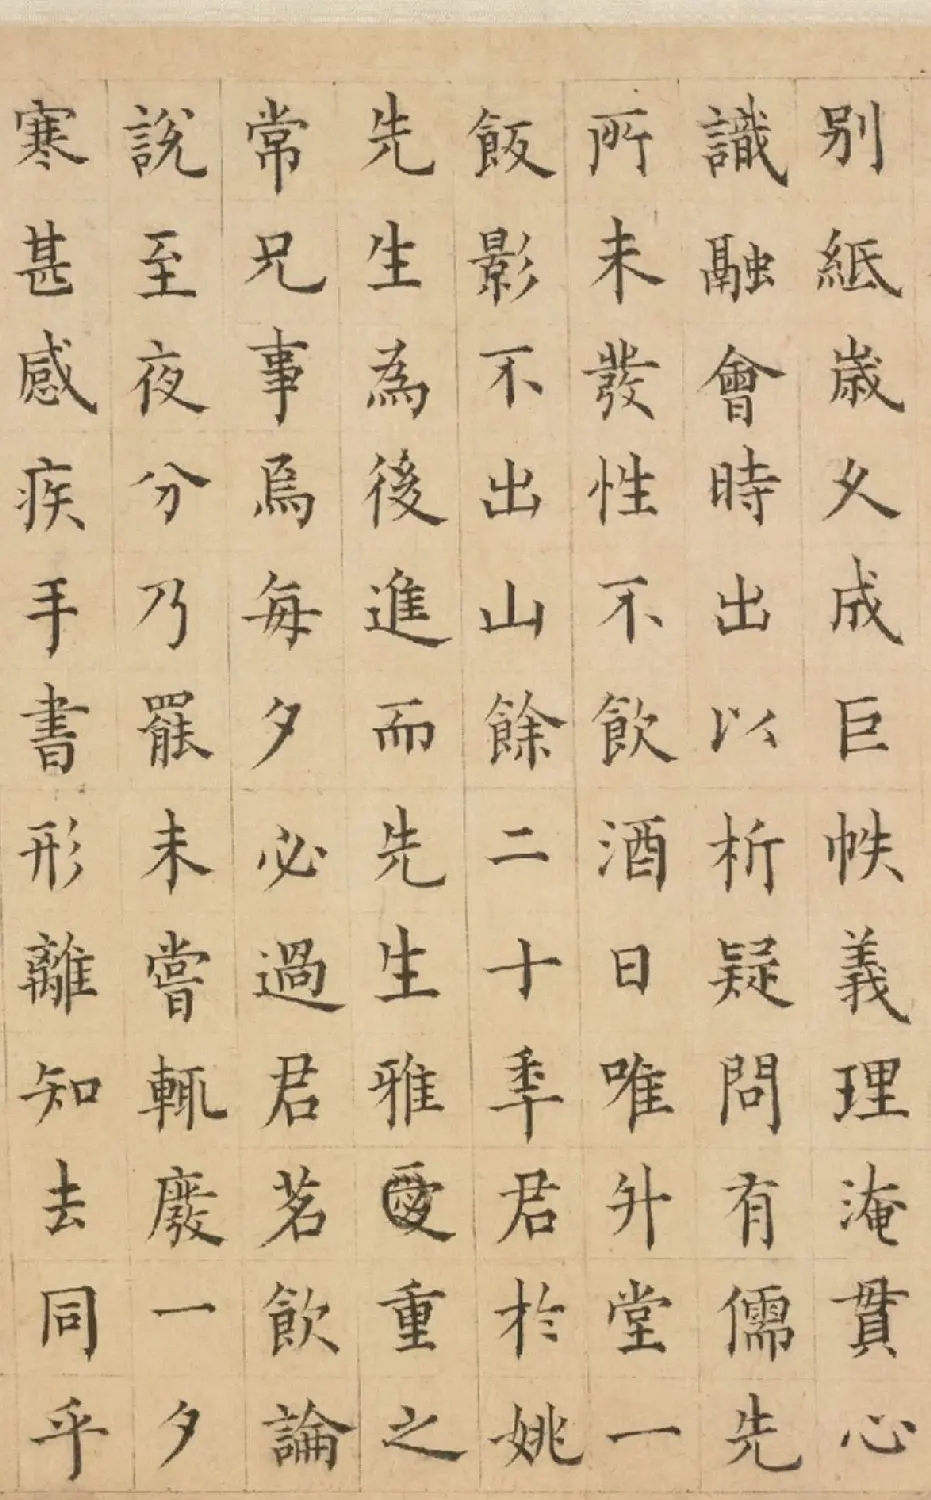 別紙歲久成巨帙義理淹貫心
識融會時出以析疑問有儒先
所未發性不飲酒日唯升堂一
飯影不出山餘二十秊君於姚
先生為後進而先生雅愛重之
常兄事焉每夕必過君茗飲論
說至夜分乃罷未嘗輒廢一夕
寒甚感疾手書形離知去同乎